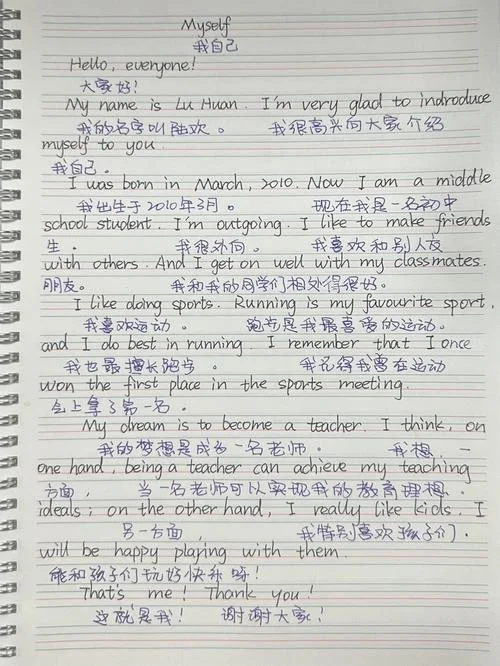 Myself
我自己
Hello, everyone!
大家好!
My name is Lu Huan. I'm very glad to indroduce
我的名字叫陆欢。 我很高兴向大家介绍
myself to you.
我自己。
I was born in March, 2010. Now I am a middle
我出生于2010年3月。 现在我是一名初中
school student. I'm outgoing. I like to make friends
生。 我很外向。 我喜欢和别人交
with others. And I get on well with my classmates.
朋友。 我和我的同学们相处得很好。
I like doing sports. Running is my favourite sport,
我喜欢运动。 跑步是我最喜爱的运动。
and I do best in running. I remember that I once
我也最擅长跑步。 我记得我曾在运动
won the first place in the sports meeting.
会上拿了第一名。
My dream is to become a teacher. I think, on
我的梦想是成为一名老师。 我想,一
one hand, being a teacher can achieve my teaching
方面, 当一名老师可以实现我的教育理想。
ideals; on the other hand, I really like kids. I
另一方面, 我特别喜欢孩子们。
will be happy playing with them.
能和孩子们玩好快乐呀!
That's me! Thank you!
这就是我! 谢谢大家!